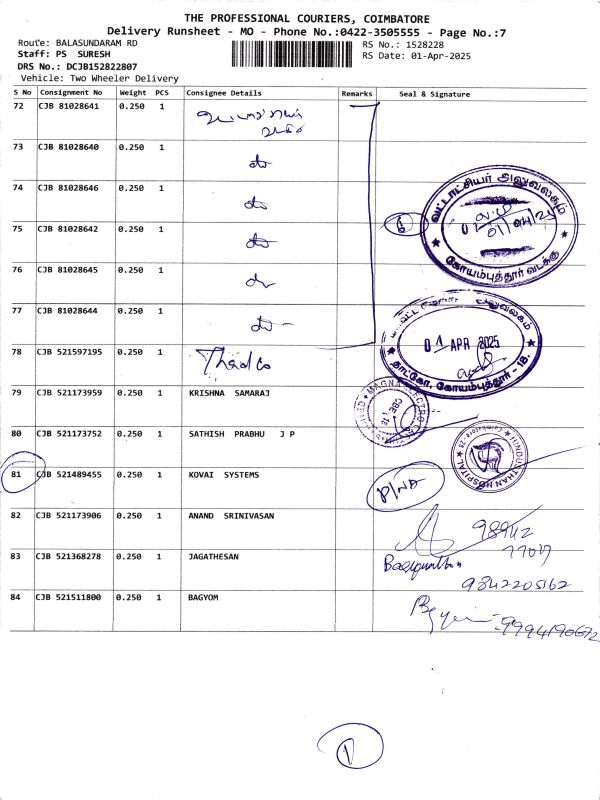 THE PROFESSIONAL COURIERS, COIMBATORE
Delivery Runsheet - MO - Phone No.:0422-3505555 - Page No.:7
Route: BALASUNDARAM RD
RS No.: 1528228
Staff: PS SURESH
RS Date: 01-Apr-2025
DRS No.: DCJB152822807
Vehicle: Two Wheeler Delivery
S No Consignment No Weight PCS Consignee Details Remarks Seal & Signature
72 CJB 81028641 0.250 1
73 CJB 81028640 0.250 1
74 CJB 81028646 0.250 1
75 CJB 81028642 0.250 1
வட்டாட்சியர் அலுவலகம்
கோயம்புத்தூர் வடக்கு
6
76 CJB 81028645 0.250 1
77 CJB 81028644 0.250 1
அலுவலகம்
01 APR 2025
தாட்கோ, கோயம்புத்தூர் - 18.
78 CJB 521597195 0.250 1 Thadco
79 CJB 521173959 0.250 1 KRISHNA SAMARAJ
MAGNA ELECTRO
CBE - 18
80 CJB 521173752 0.250 1 SATHISH PRABHU J P
HINDUSTHAN HOSPITAL
Coimbatore
81 CJB 521489455 0.250 1 KOVAI SYSTEMS
82 CJB 521173906 0.250 1 ANAND SRINIVASAN
83 CJB 521368278 0.250 1 JAGATHESAN
77017
9842205162
84 CJB 521511800 0.250 1 BAGYOM
9994190672
1